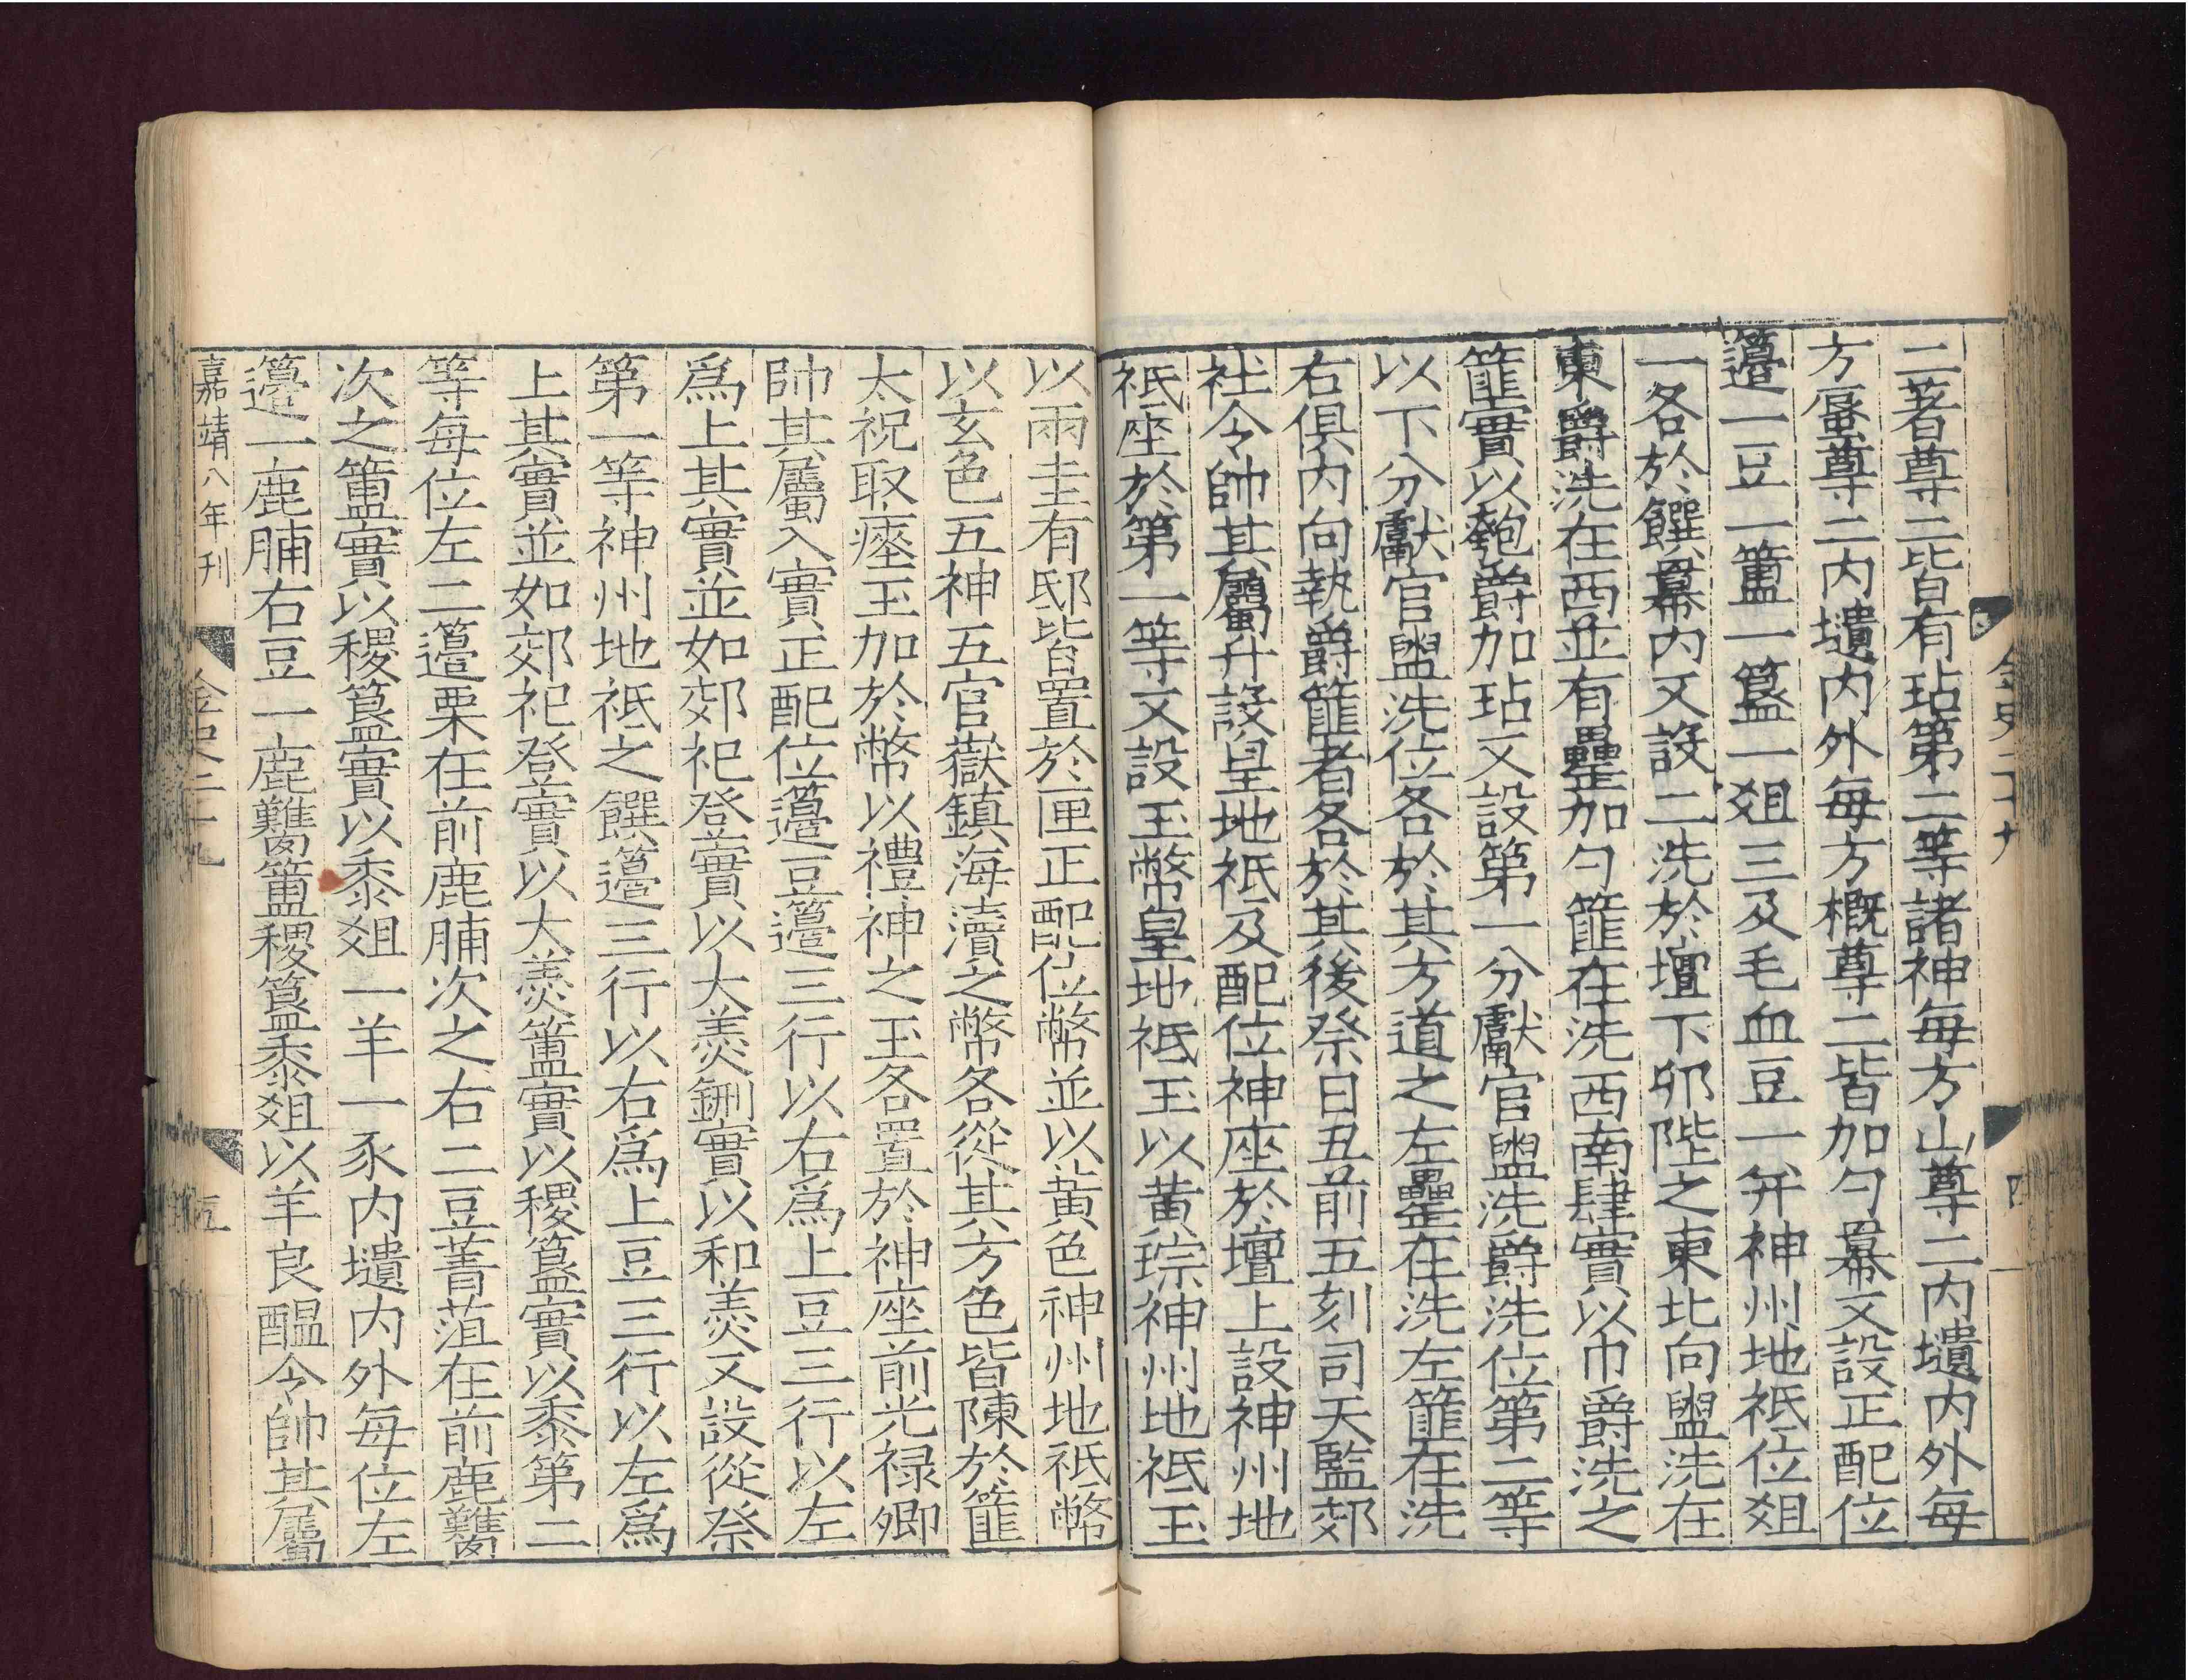 二著尊二皆有坫第二等諸神每方山尊二内壝内外每
方蜃尊二内壝内外每方概尊二皆加勺羃又設正配位
籩一豆一簠一簋一爼三及毛血豆一并神州地祇位爼
一各於饌幕内又設二洗於壇下夘陛之東北向盥洗在
東爵洗在西並有罍加勺篚在洗西南肆實以巾爵洗之
篚實以匏爵加坫又設第一分獻官盥洗爵洗位第二等
以下分獻官盥洗位各於其方道之左罍在洗左篚在洗
右俱内向執爵篚者各於其後祭日丑前五刻司天監郊
社令帥其屬升設皇地祇及配位神座於壇上設神州地
祇座於第一等又設玉幣皇地祇玉以黄琮神州地祇玉
以兩圭有邸皆置於匣正配位幣並以黄色神州地祇幣
以玄色五神五官嶽鎮海瀆之幣各從其方色皆陳於篚
太祝取瘞玉加於幣以禮神之玉各置於神座前光禄卿
帥其屬入實正配位籩豆籩三行以右爲上豆三行以左
爲上其實並如郊祀登實以大羮鉶實以和羮又設從祭
第一等神州地祇之饌籩三行以右爲上豆三行以左爲
上其實並如郊祀登實以大羮簠實以稷簋實以黍第二
等每位左二籩栗在前鹿脯次之右二豆菁菹在前鹿臡
次之簠實以稷簋實以黍爼一羊一豕内壝内外每位左
籩一鹿脯右豆一鹿臡簠稷簋黍爼以羊良醖令帥其屬
嘉靖八年刊
金史二十九
五